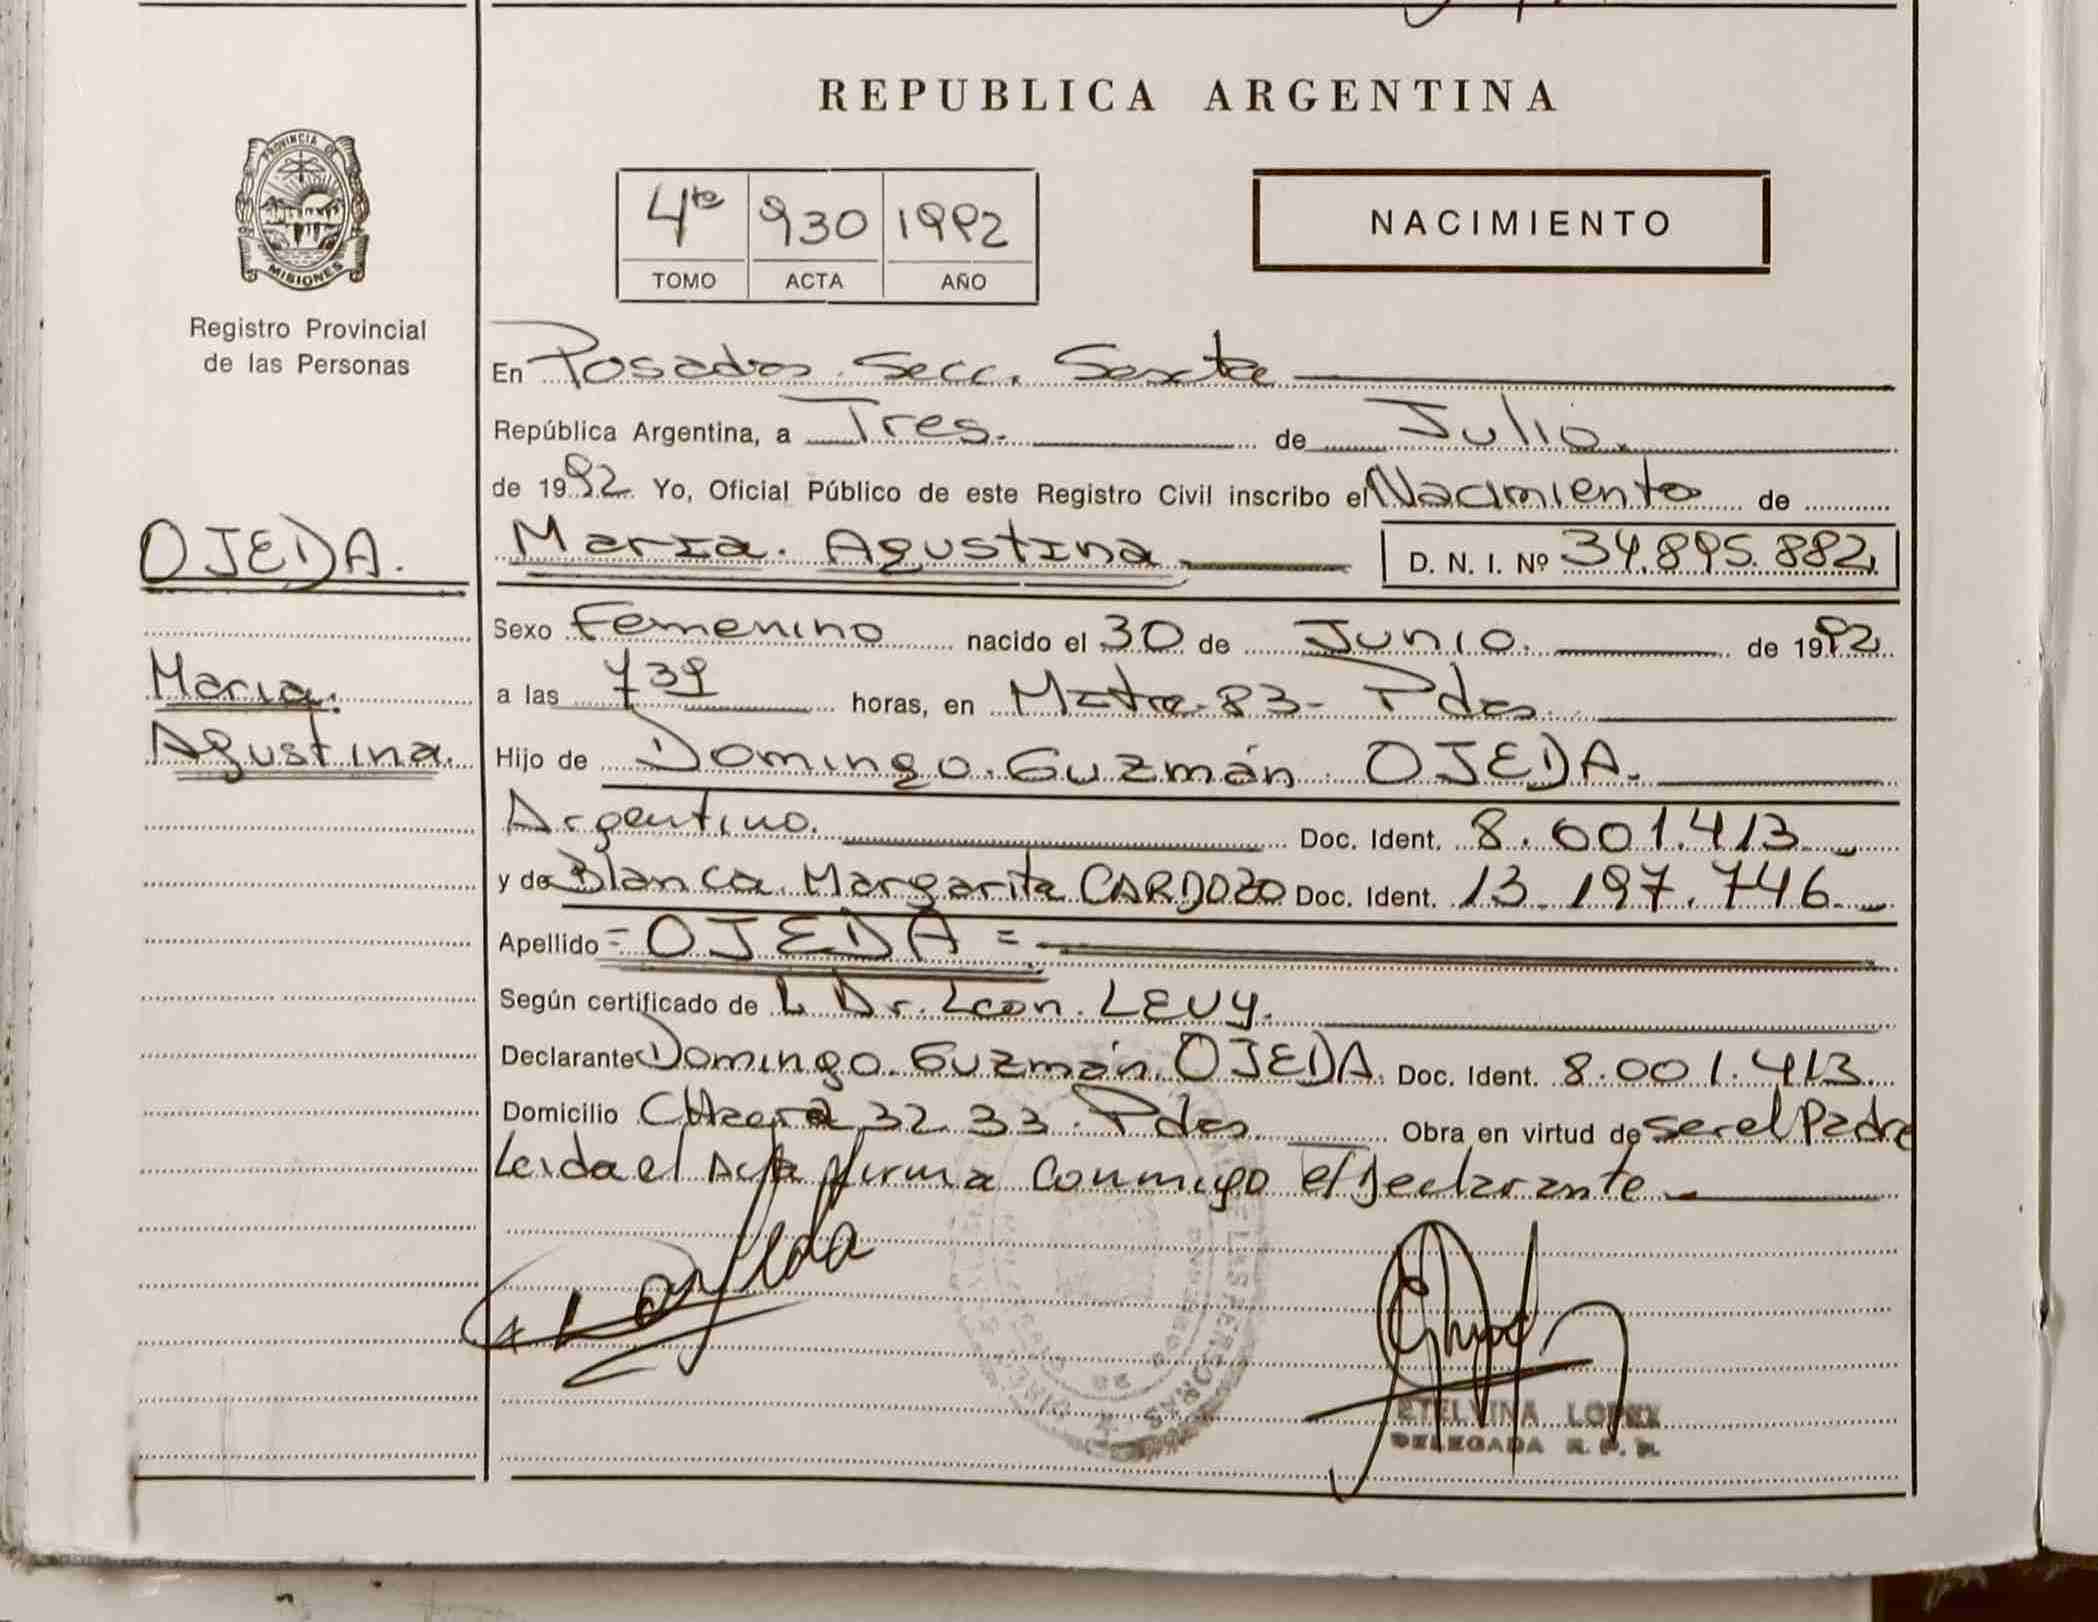 REPUBLICA ARGENTINA
PROVINCIA DE
MISIONES
Registro Provincial
de las Personas
4to 930 1992
TOMO ACTA AÑO
NACIMIENTO
En Posadas Secc. Sexta
República Argentina, a Tres. de Julio.
de 1992. Yo, Oficial Público de este Registro Civil inscribo el Nacimiento de
OJEDA.
Maria. Agustina D. N. I. Nº 34.895.882
Maria.
Agustina.
Sexo Femenino nacido el 30 de Junio. de 1992
a las 739 horas, en Mztra-83- Pdas.
Hijo de Domingo Guzmán OJEDA.
Argentino. Doc. Ident. 8.001.413
y de Blanca Margarita CARDOZO Doc. Ident. 13.197.746.
Apellido = OJEDA =
Según certificado de L Dr. Leon LEVY.
Declarante Domingo Guzmán OJEDA. Doc. Ident. 8.001.413
Domicilio 32 33. Pdas. Obra en virtud de ser el Padre
Leida el Acta firma conmigo el Declarante
ETELVINA LOPEZ
DELEGADA R. P. P.